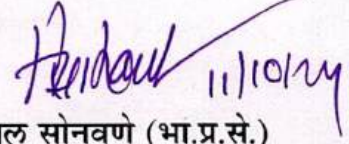 11/10/24
ल सोनवणे (भा.प्र.से.)